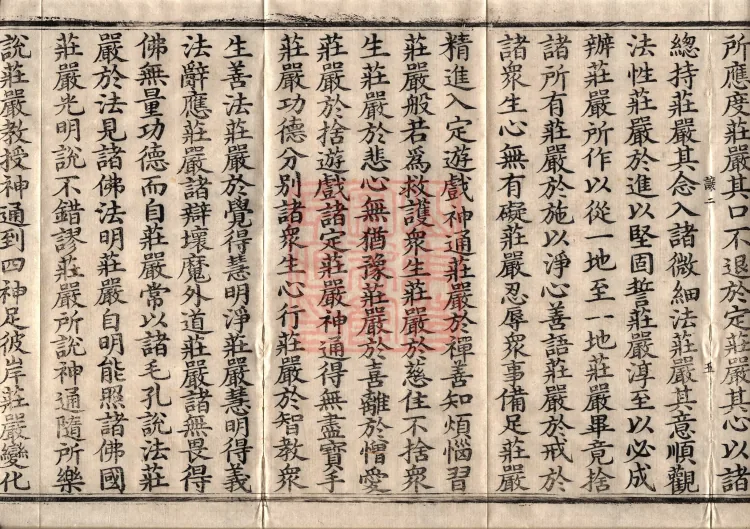 所應度莊嚴其口不退於定莊嚴其心以諸
總持莊嚴其念入諸微細法莊嚴其意順觀
法性莊嚴於進以堅固誓莊嚴淳至以必成
辦莊嚴所作以從一地至一地莊嚴畢竟捨
諸所有莊嚴於施以淨心善語莊嚴於戒於
諸衆生心無有礙莊嚴忍辱衆事備足莊嚴
精進入定遊戲神通莊嚴於禪善知煩惱習
莊嚴般若為救護衆生莊嚴於慈住不捨衆
生莊嚴於悲心無猶豫莊嚴於喜離於憎愛
莊嚴於捨遊戲諸定莊嚴神通得無盡寶手
莊嚴功德分別諸衆生心行莊嚴於智教衆
生善法莊嚴於覺得慧明淨莊嚴慧明得義
法辭應莊嚴諸辯壞魔外道莊嚴諸無畏得
佛無量功德而自莊嚴常以諸毛孔說法莊
嚴於法見諸佛法明莊嚴自明能照諸佛國
莊嚴光明說不錯謬莊嚴所說神通隨所樂
說莊嚴教授神通到四神足彼岸莊嚴變化